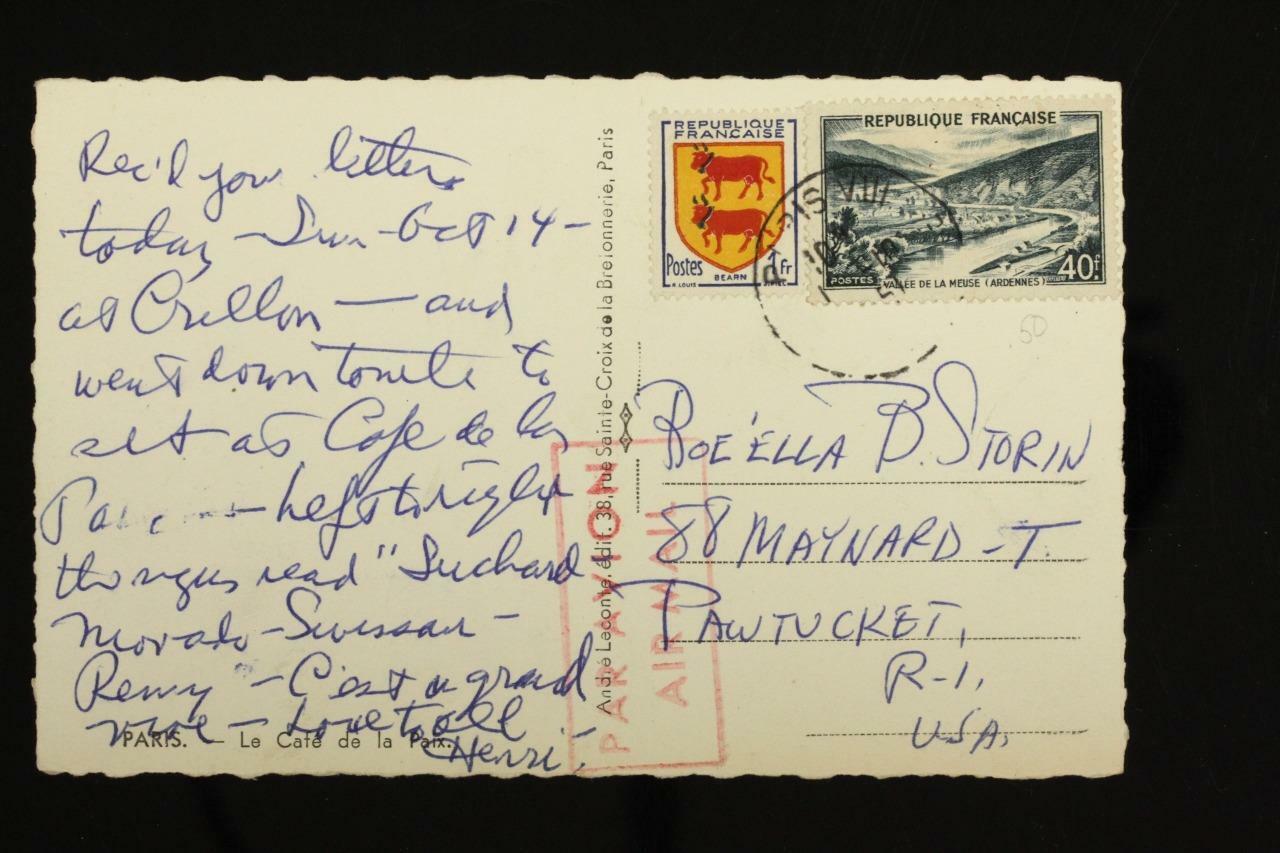 Rec'd your letters
today - Sun - Oct 14 -
at Crillon — and
went down tonite to
sit at Cafe de la
Paix — Left to right
the signs read "Suchard
Movado - Suissair -
Remy - C'est a grand
vive - Love to all
Henri.
PARIS. — Le Café de la Paix.
André Leconte, édit. 38, rue Sainte-Croix de la Bretonnerie, Paris
PAR AVION
AIR MAIL
REPUBLIQUE
FRANÇAISE
Postes
1 Fr
BEARN
R. LOUIS
REPUBLIQUE FRANÇAISE
POSTES
VALLÉE DE LA MEUSE (ARDENNES)
40f.
PARIS VIII
50
ROE'ELLA B. STORIN
88 MAYNARD - T.
PAWTUCKET,
R-I.
USA.